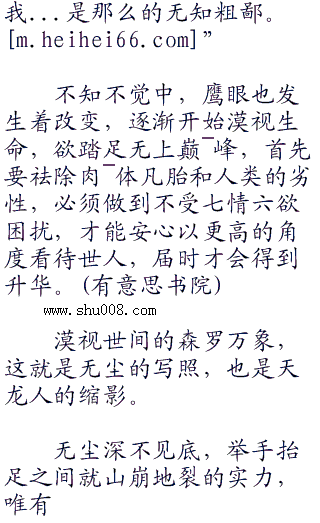 我...是那么的无知粗鄙。
[m.heihei66.com]”
不知不觉中，鹰眼也发
生着改变，逐渐开始漠视生
命，欲踏足无上巅¯峰，首先
要祛除肉¯体凡胎和人类的劣
性，必须做到不受七情六欲
困扰，才能安心以更高的角
度看待世人，届时才会得到
升华。(有意思书院)
www.shu008.com
漠视世间的森罗万象，
这就是无尘的写照，也是天
龙人的缩影。
无尘深不见底，举手抬
足之间就山崩地裂的实力，
唯有